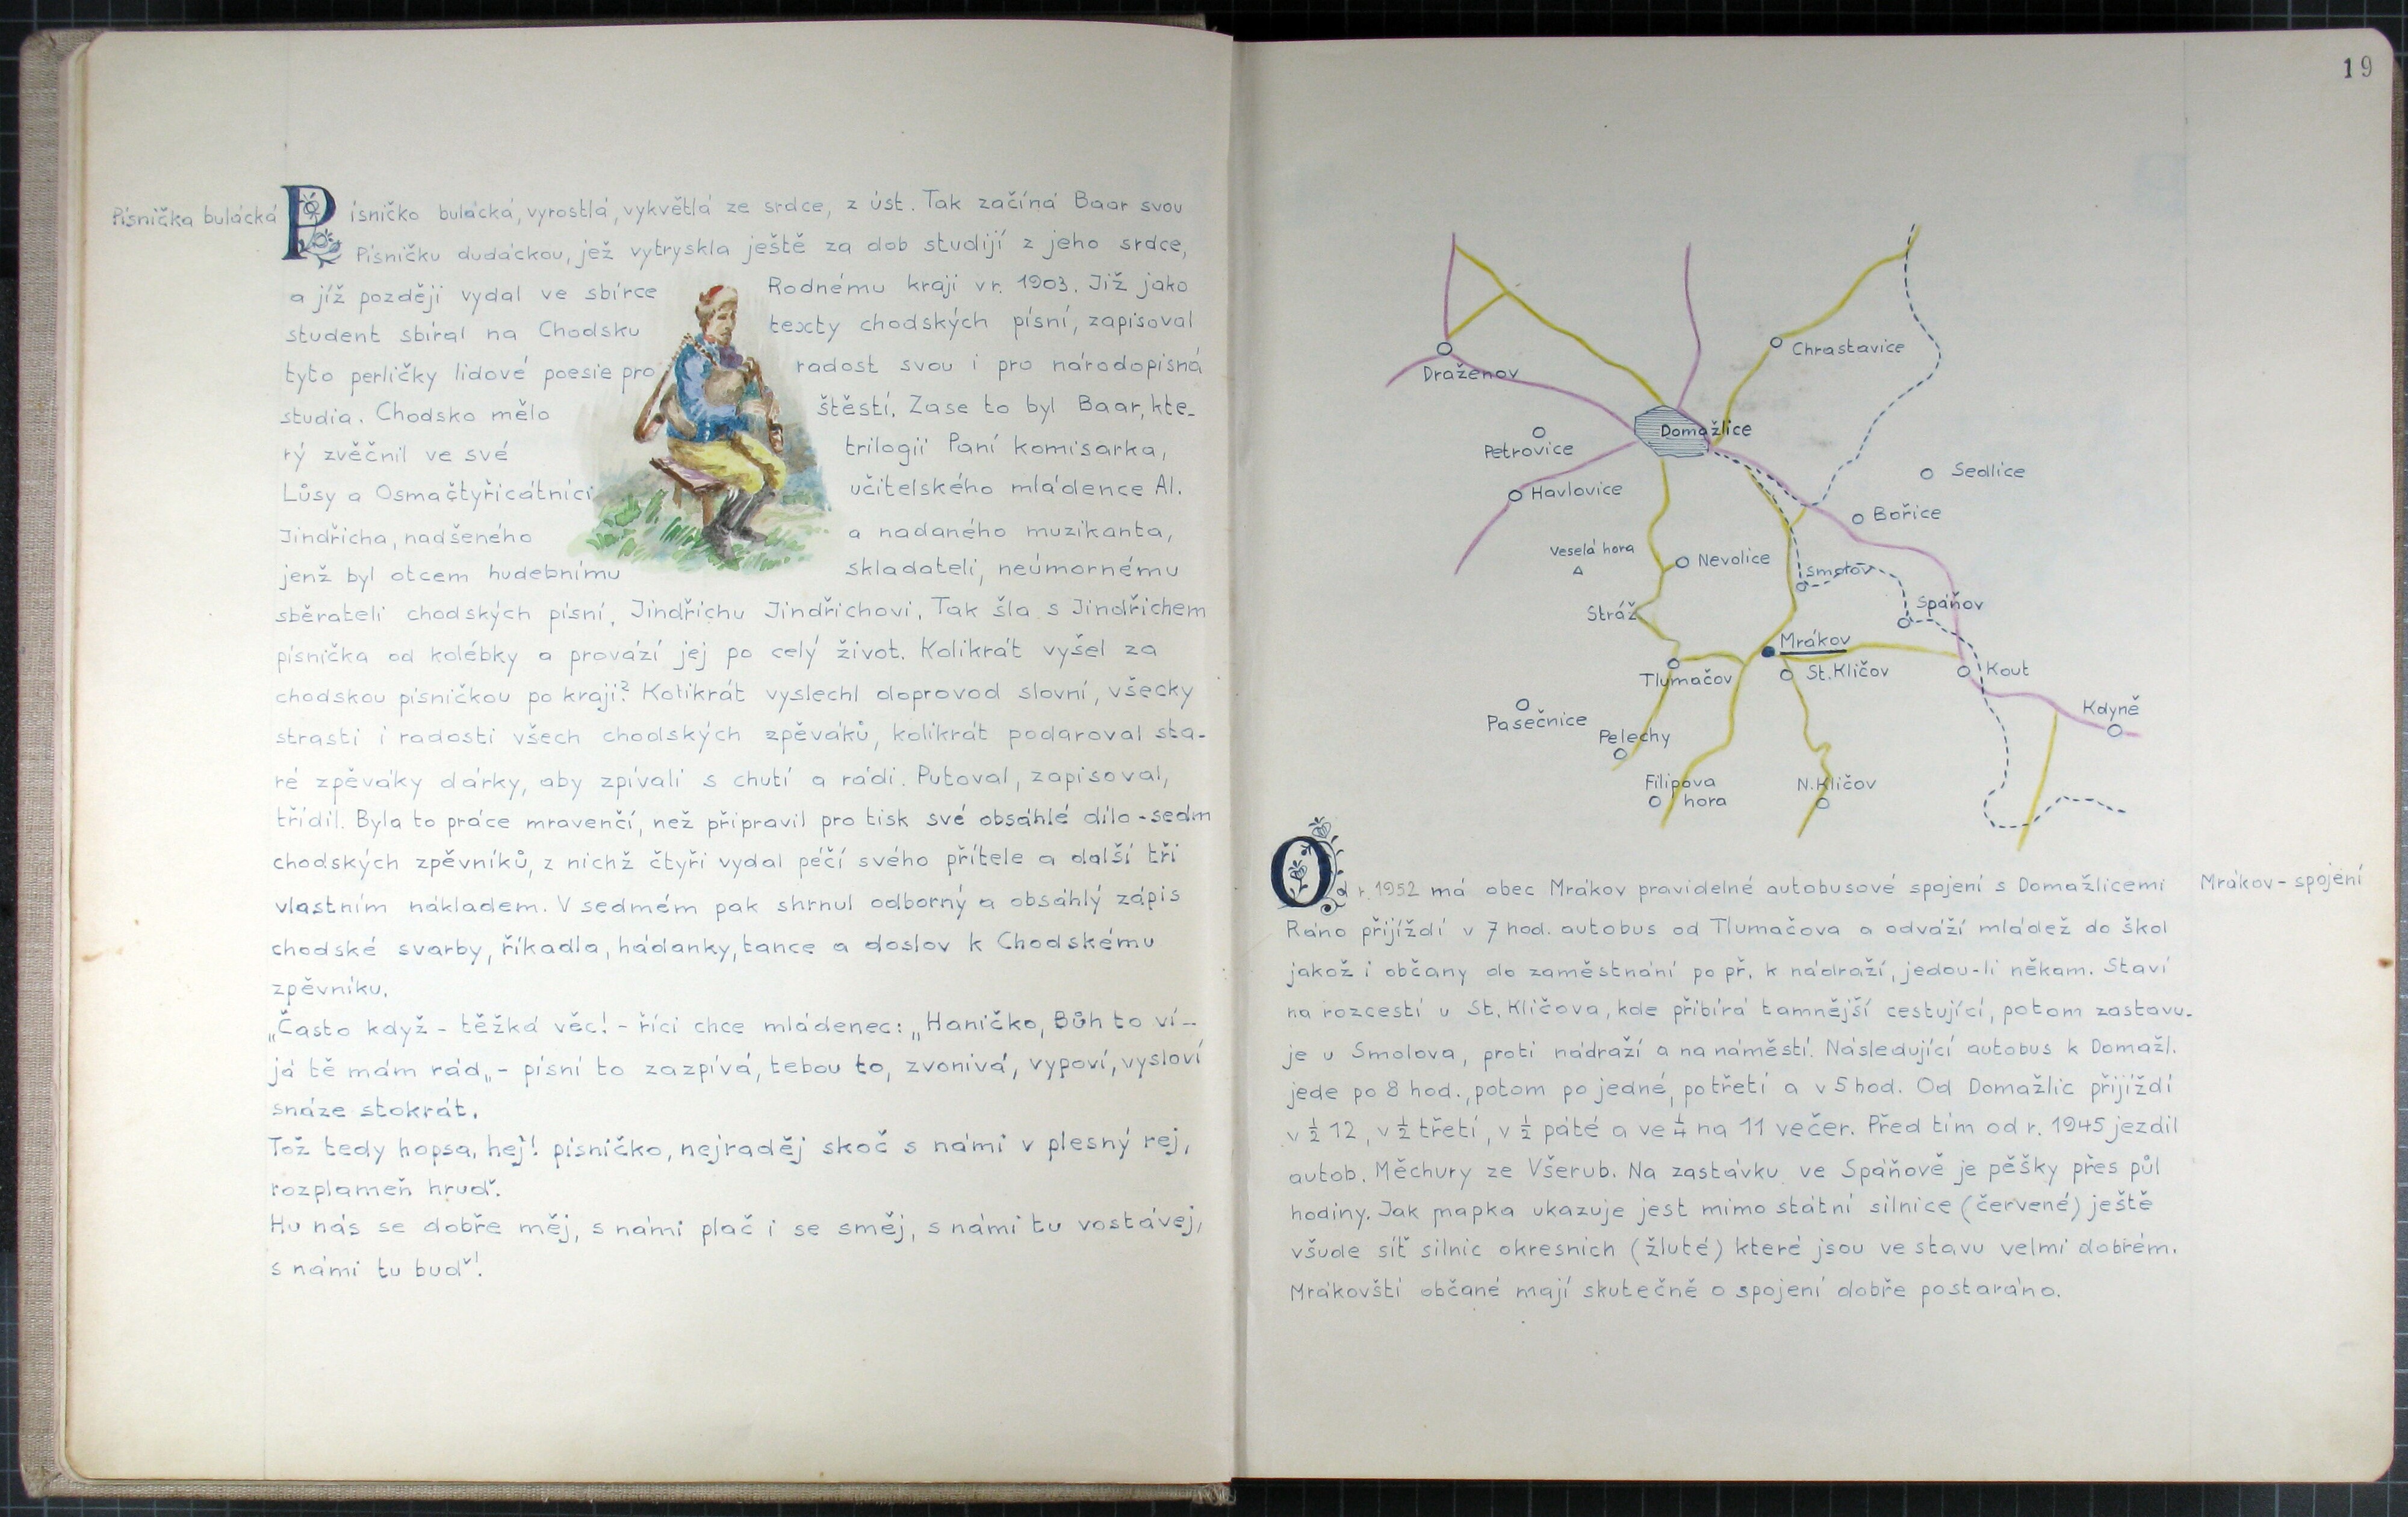 Písnička bulácká
Písničko bulácká, vyrostlá, vykvětlá ze srdce, z úst. Tak začíná Baar svou
Písničku dudáckou, jež vytryskla ještě za dob studijí z jeho srdce,
a jíž později vydal ve sbírce Rodnému kraji v r. 1903. Již jako
student sbíral na Chodsku texty chodských písní, zapisoval
tyto perličky lidové poesie pro radost svou i pro národopisná
studia. Chodsko mělo štěstí. Zase to byl Baar, kte-
rý zvěčnil ve své trilogii Paní komisarka,
Lůsy a Osmačtyřicátníci učitelského mládence Al.
Jindřicha, nadšeného a nadaného muzikanta,
jenž byl otcem hudebnímu skladateli, neúmornému
sběrateli chodských písní, Jindřichu Jindřichovi. Tak šla s Jindřichem
písnička od kolébky a provází jej po celý život. Kolikrát vyšel za
chodskou písničkou po kraji? Kolikrát vyslechl doprovod slovní, všecky
strasti i radosti všech chodských zpěváků, kolikrát podaroval sta-
ré zpěváky dárky, aby zpívali s chutí a rádi. Putoval, zapisoval,
třídil. Byla to práce mravenčí, než připravil pro tisk své obsáhlé dílo - sedm
chodských zpěvníků, z nichž čtyři vydal péčí svého přítele a další tři
vlastním nákladem. V sedmém pak shrnul odborný a obsáhlý zápis
chodské svarby, říkadla, hádanky, tance a doslov k Chodskému
zpěvníku.
„Často když - těžká věc! - říci chce mládenec: „Haničko, Bůh to ví -
já tě mám rád„ - písní to zazpívá, tebou to, zvonivá, vypoví, vysloví
snáze stokrát.
Tož tedy hopsa, hej! písničko, nejraděj skoč s námi v plesný rej,
rozplameň hruď.
Hu nás se dobře měj, s námi plač i se směj, s námi tu vostávej,
s námi tu buď!
19
Draženov
Chrastavice
Domažlice
Petrovice
Havlovice
Sedlice
Bořice
Veselá hora
Nevolice
Smolov
Stráž
Spáňov
Mrákov
Tlumačov
St. Kličov
Kout
Pasečnice
Kdyně
Pelechy
Filipova
hora
N. Kličov
Od r. 1952 má obec Mrákov pravidelné autobusové spojení s Domažlicemi
Mrákov - spojení
Ráno přijíždí v 7 hod. autobus od Tlumačova a odváží mládež do škol
jakož i občany do zaměstnání po př. k nádraží, jedou-li někam. Staví
na rozcestí u St. Kličova, kde přibírá tamnější cestující, potom zastavu-
je u Smolova, proti nádraží a na náměstí. Následující autobus k Domažl.
jede po 8 hod., potom po jedné, po třetí a v 5 hod. Od Domažlic přijíždí
v ½ 12, v ½ třetí, v ½ páté a ve ¼ na 11 večer. Před tím od r. 1945 jezdil
autob. Měchury ze Všerub. Na zastávku ve Spáňově je pěšky přes půl
hodiny. Jak mapka ukazuje jest mimo státní silnice (červené) ještě
všude síť silnic okresních (žluté) které jsou ve stavu velmi dobrém.
Mrákovští občané mají skutečně o spojení dobře postaráno.